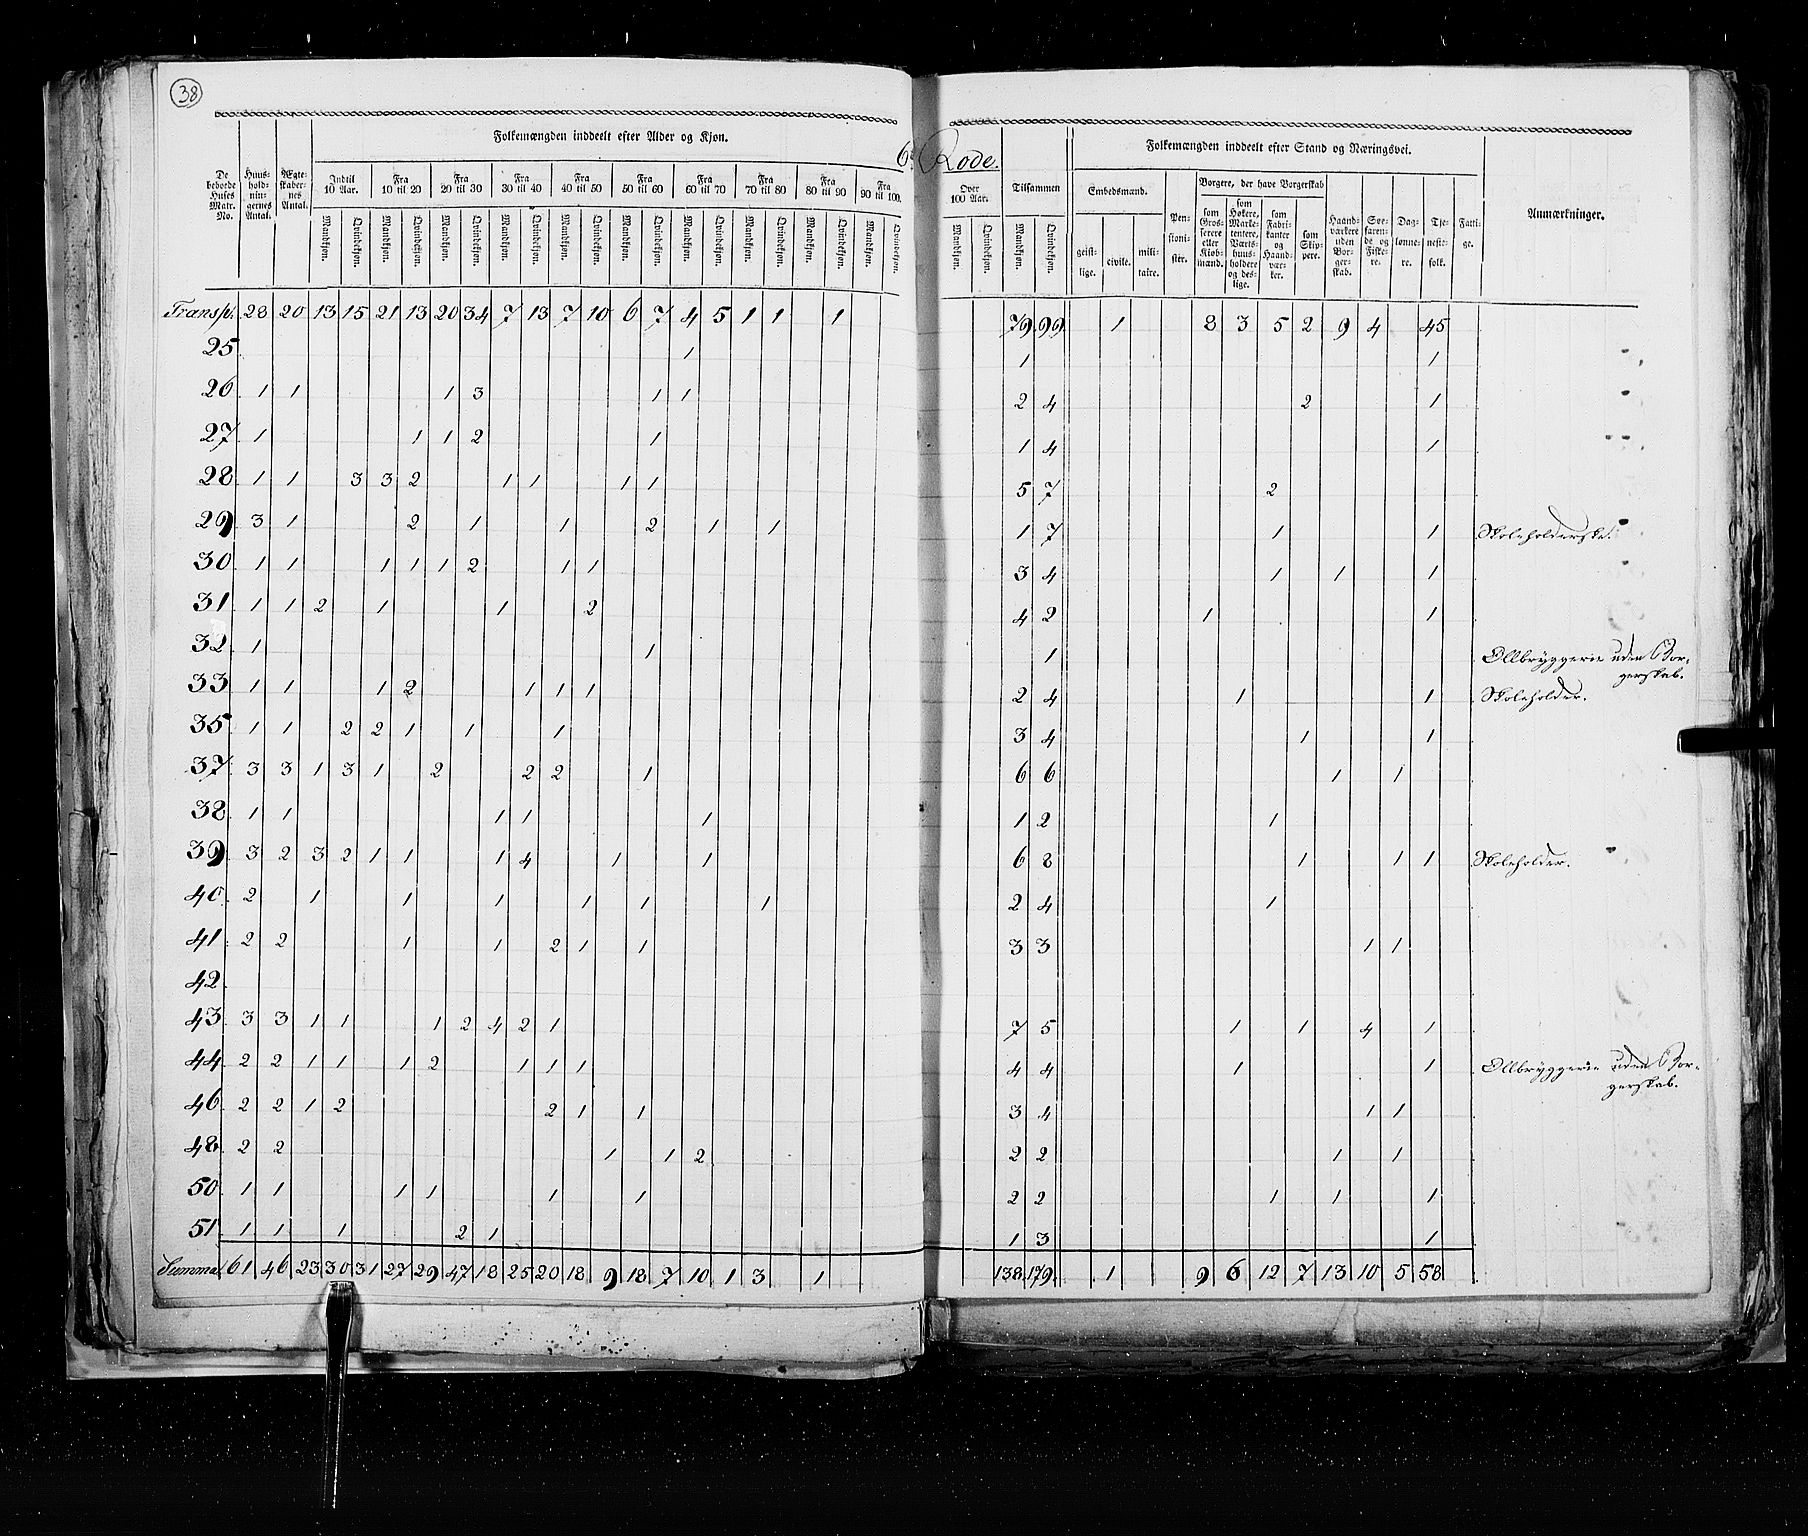 38
6te Rode.
Folkemængden inddeelt efter Alder og Kjøn.
Folkemængden inddeelt efter Stand og Næringsvei.
De beboede Huses Matr. No.
Huus-hold-nin-gernes Antal.
Ægte-skaber-nes Antal.
Indtil 10 Aar.
Fra 10 til 20
Fra 20 til 30
Fra 30 til 40
Fra 40 til 50
Fra 50 til 60
Fra 60 til 70
Fra 70 til 80
Fra 80 til 90
Fra 90 til 100.
Over 100 Aar.
Tilsammen
Embedsmænd.
Borgere, der have Borgerskab
Mandkjøn. Qvindekjøn. Mandkjøn. Qvindekjøn. Mandkjøn. Qvindekjøn. Mandkjøn. Qvindekjøn. Mandkjøn. Qvindekjøn. Mandkjøn. Qvindekjøn. Mandkjøn. Qvindekjøn. Mandkjøn. Qvindekjøn. Mandkjøn. Qvindekjøn. Mandkjøn. Qvindekjøn. Mandkjøn. Qvindekjøn. Mandkjøn. Qvindekjøn.
geist-lige.
civile.
mili-taire.
Pen-sioni-ster.
som Gros-serere eller Kjøb-mænd.
som Høkere, Marke-tentere, Værts-huus-holdere og des-lige.
som Fabri-kanter og Haand-vær-kere.
som Skip-pere.
Haand-værkere uden Bor-ger-skab.
Søe-farende og Fiske-re.
Dag-lønne-re.
Tje-neste-folk.
Fatti-ge.
Anmærkninger.
Transp. 28 20 13 15 21 13 20 34 7 13 7 10 6 7 4 5 1 1 1 79 99 1 8 3 5 2 9 4 45
25 1 1 1
26 1 1 1 3 1 1 2 4 2 1
27 1 1 1 2 1 1 4 1
28 1 1 3 3 2 1 1 1 1 5 7 2
29 3 1 2 1 1 2 1 1 1 7 1 1 Skoleholderske.
30 1 1 1 1 1 2 1 1 3 4 1 1 1
31 1 1 2 1 1 2 4 2 1 1
32 1 1 1 Øllbryggerie uden Bor-
gerskab.
33 1 1 1 2 1 1 1 2 4 1 1 Skoleholder.
35 1 1 2 2 1 1 1 3 4 1 1
37 3 3 1 3 1 2 2 2 1 6 6 1 1
38 1 1 1 1 1 1 2 1
39 3 2 3 2 1 1 1 4 1 1 6 8 1 1 1 Skoleholder.
40 2 1 1 1 1 1 1 2 4 1
41 2 2 1 1 2 1 1 3 3 1 1
42
43 3 3 1 1 1 2 4 2 1 7 5 1 1 4 1
44 2 2 1 1 1 2 1 1 1 4 4 1 1 Øllbryggerie uden Bor-
gerskab.
46 2 2 1 2 2 1 1 3 4 1 1
48 2 2 1 1 2 2 2 1 1
50 1 1 1 1 1 1 2 2 1 1 1
51 1 1 1 2 1 1 3 1
Summa 61 46 23 30 31 27 29 47 18 25 20 18 9 18 7 10 1 3 1 138 179 1 9 6 12 7 13 10 5 58